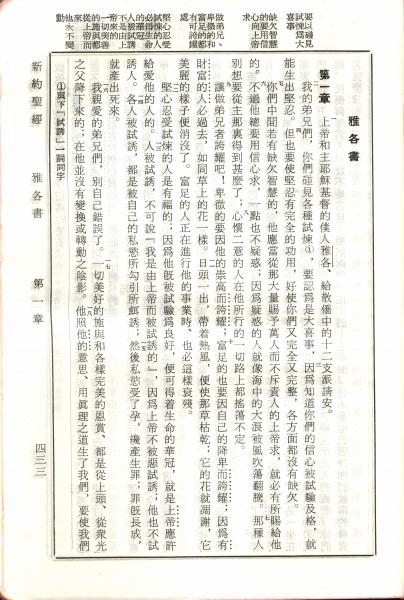 要以碰見
試煉爲大
喜事
缺欠智慧
的要用信
心向上帝
求
做弟兄、
卑微的和
富足的都
有可誇耀
處
堅心忍受
試煉的人
必得生命
的華冠
不是由上
帝來的
一切美善
的施與都
從上帝而
來
他永不變
動
雅各書
第一章
上帝和主耶穌基督的僕人雅各、給散僑中的十二支派請安。
我的弟兄們，你們碰見各種試煉①，要認爲是大喜事，因爲知道你們的信心被試驗及格，就
能生出堅忍。但也要使堅忍有完全的功用，好使你們又完全又完整、各方面都沒有缺欠。
你們中間若有缺欠智慧的，他應當從那大量賜予萬人而不斥責人的上帝求，就必有所賜給他
的。不過他總要用信心求，一點也不疑惑；因爲疑惑的人就像海中的大浪被風吹蕩翻騰。那種人
別想要從主那裏得到甚麼了；心懷二意的人在他所行的一切路上都搖蕩不定。
讓做弟兄者誇耀吧！卑微的要因他的崇高而誇耀；富足的也要因自己的降卑而誇耀；因爲有
財富的人必過去，如同草上的花一樣。日頭一出，帶着熱風，便使那草枯乾；它的花就凋謝，它
美麗的樣子便消沒了。富足的人正在進行他的事業時，也必這樣衰殘。
堅心忍受試煉的人是有福的；因爲他既被試驗爲良好，便可得着生命的華冠，就是上帝應許
給愛他的人的。人被試誘，不可說『我是由上帝而被試誘的』，因爲上帝不被惡試誘；他也不試
誘人。各人被試誘，都是被自己的私慾所勾引所餌誘；然後私慾受了孕，纔產生罪；罪既長成，
就產出死來。
我親愛的弟兄們，別自己錯誤了。一切美好的施與和各樣完美的恩賞、都是從上頭、從衆光
之父降下來的；在他並沒有變換或轉動之陰影。他照他的意思、用眞理之道生了我們，要使我們
①與下「試誘」一詞同字
新約聖經　雅各書　第一章　四二三